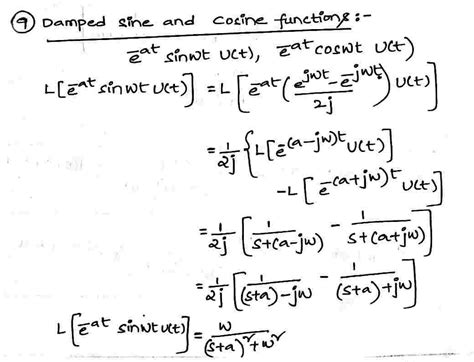 ⑨ Damped sine and cosine functions:-
e^{-at} sinωt U(t), e^{-at} cosωt U(t)
L[e^{-at} sinωt U(t)] = L[e^{-at} ((e^{jωt} - e^{-jωt})/2j) U(t)]
= 1/2j {L[e^{-(a-jω)t} U(t)]
-L[e^{-(a+jω)t} U(t)]
= 1/2j [1/(s+(a-jω)) - 1/(s+(a+jω))]
= 1/2j [1/((s+a)-jω) - 1/((s+a)+jω)]
L[e^{-at} sinωt U(t)] = ω/((s+a)²+ω²)